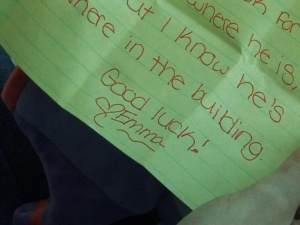 where he is,
ut I know he's
here in the building.
Good luck!
Emma